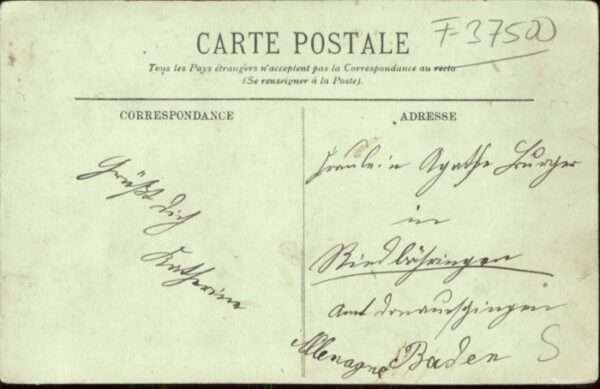 F-37500
CARTE POSTALE
Tous les Pays étrangers n'acceptent pas la Correspondance au recto
(Se renseigner à la Poste).
CORRESPONDANCE
ADRESSE
Grüßt dich
Katherine
Fräulein Agathe Burger
in
Riedböhringen
Amt Donaueschingen
Allemagne Baden